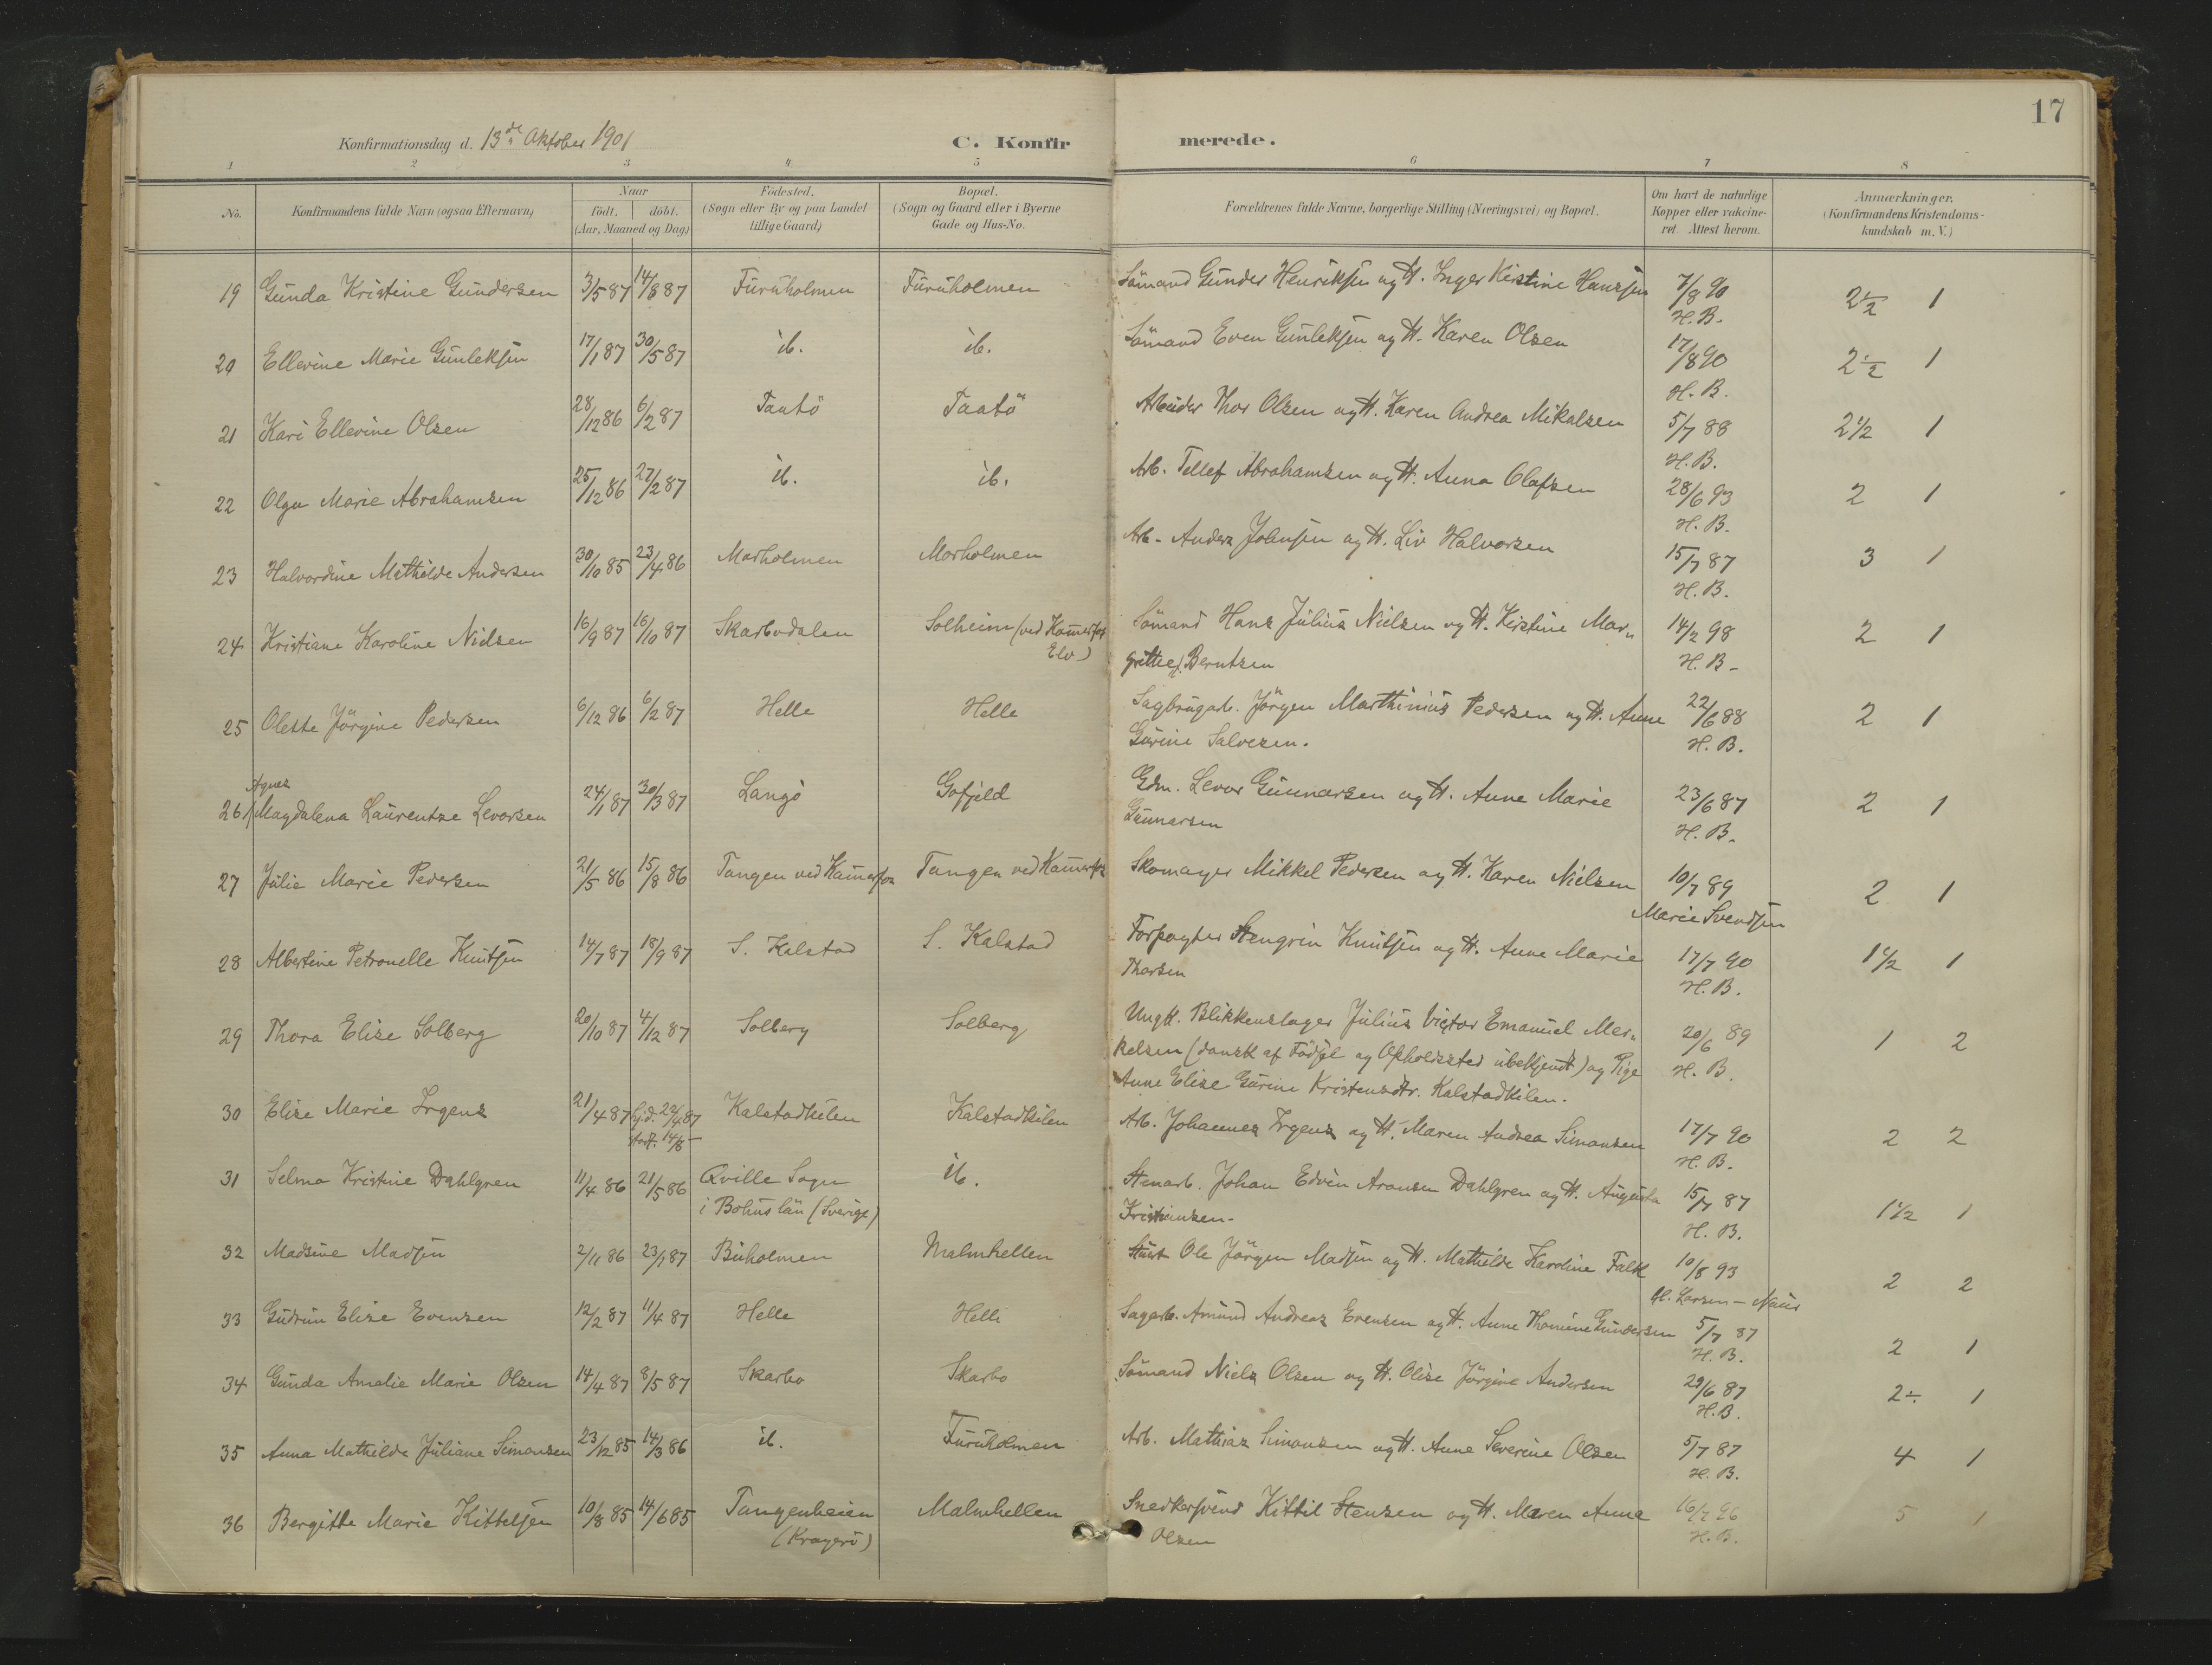 17
Konfirmationsdag d. 13de Oktober 1901
C. Konfirmerede.
1 2 3 4 5 6 7 8
No. Konfirmandens fulde Navn (ogsaa Efternavn) Naar födt. döbt. (Aar, Maaned og Dag) Födested. (Sogn eller By og paa Landet tillige Gaard) Bopæl. (Sogn og Gaard eller i Byerne Gade og Hus-No. Forældrenes fulde Navne, borgerlige Stilling (Næringsvei) og Bopæl. Om havt de naturlige Kopper eller vakcineret. Attest herom. Anmærkninger. (Konfirmandens Kristendomskundskab m. V.)
19 Gunda Kristine Gundersen 3/5 87 14/8 87 Furuholmen Furuholmen Sömand Gunder Henriksen og H. Inger Kirstine Hansen 7/8 90 H. B. 2 1/2 1
20 Ellevine Marie Gunleksen 17/1 87 30/5 87 ib. ib. Sömand Even Gunleksen og H. Karen Olsen 17/8 90 H. B. 2 1/2 1
21 Kari Ellevine Olsen 28/12 86 6/2 87 Taatö Taatö Arbeider Thor Olsen og H. Karen Andrea Mikalsen 5/7 88 H. B. 2 1/2 1
22 Olga Marie Abrahamsen 25/12 86 27/2 87 ib. ib. Arb. Tellef Abrahamsen og H. Anna Olafsen 28/6 93 H. B. 2 1
23 Halvordine Mathilde Andersen 30/10 85 23/4 86 Morholmen Morholmen Arb. Anders Johnsen og H. Liv Halvorsen 15/7 87 H. B. 3 1
24 Kristiane Karoline Nielsen 16/9 87 16/10 87 Skarbodalen Solheim (ved Kamerfos Elv) Sömand Hans Julius Nielsen og H. Kirstine Mar„
grethe Berntsen 14/2 98 H. B. 2 1
25 Olette Jörgine Pedersen 6/12 86 6/2 87 Helle Helle Sagbrugarb. Jörgen Marthinius Pedersen og H. Anne
Gurine Salvesen. 22/6 88 H. B. 2 1
Agnes
26 Magdalena Laurentze Levorsen 24/1 87 30/3 87 Langö Gofjeld Gdm. Levor Gunnarsen og H. Anne Marie
Gunnarsen 23/6 87 H. B. 2 1
27 Julie Marie Pedersen 21/5 86 15/8 86 Tangen ved Kamerfos Tangen ved Kamerfos Skomager Mikkel Pedersen og H. Karen Nielsen 10/7 89 Marie Svendsen 2 1
28 Albertine Petronelle Knutsen 14/7 87 18/9 87 S. Kalstad S. Kalstad Forpagter Stengrim Knutsen og H. Anne Marie
Thorsen 17/7 90 H. B. 1 1/2 1
29 Thora Elise Solberg 20/10 87 4/12 87 Solberg Solberg Ungk. Blikkenslager Julius Victor Emanuel Mer„
kelsen (dansk af Födsel og Opholdssted ubekjendt) og Pige
Anne Elise Gurine Kristensdtr. Kalstadkilen. 20/6 89 H. B. 1 2
30 Elise Marie Irgens 21/4 87 hj.d. 22/4 87 stadf. 14/8 — Kalstadkilen Kalstadkilen Arb. Johannes Irgens og H. Maren Andrea Simonsen 17/7 90 H. B. 2 2
31 Selma Kristine Dahlgren 11/4 86 21/5 86 Qville Sogn
i Bohus län (Sverige) ib. Stenarb. Johan Edvin Aronsen Dahlgren og H. Augusta
Kristiansen. 15/7 87 H. B. 1 1/2 1
32 Madsine Madsen 2/11 86 23/1 87 Buholmen Malmhellen Ole Jörgen Madsen og H. Mathilde Karoline Falk 10/8 93 Larsen 2 2
33 Gudrun Elise Evensen 12/2 87 11/4 87 Helle Helle Sagarb. Amund Andreas Evensen og H. Anne Thomine Gundersen 5/7 87 H. B. 2 1
34 Gunda Amalie Marie Olsen 14/4 87 8/5 87 Skarbo Skarbo Sömand Niels Olsen og H. Olise Jörgine Andersen 29/6 87 H. B. 2÷ 1
35 Anna Mathilde Juliane Simonsen 23/12 85 14/3 86 ib. Furuholmen Arb. Mathias Simonsen og H. Anne Severine Olsen 5/7 87 H. B. 4 1
36 Bergitte Marie Kittelsen 10/8 85 14/6 85 Tangenheien
(Kragerö) Malmhellen Snedkersvend Kittil Stensen og H. Maren Anne
Olsen 16/7 96 H. B. 5 1